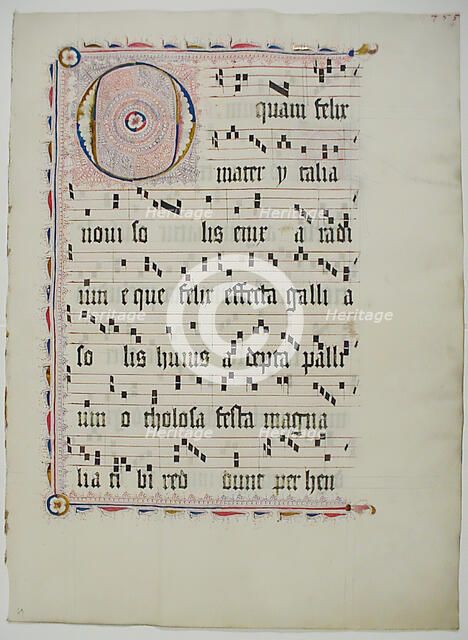 O
quam felix
mater y talia
noui so lis enix a radi
um e que felix effecta galli a
so lis huius a depta palli
um o tholosa festa magna
lia ti bi red dunt per hen
Heritage
Heritage
Heritage
Heritage
Heritage
Heritage
C